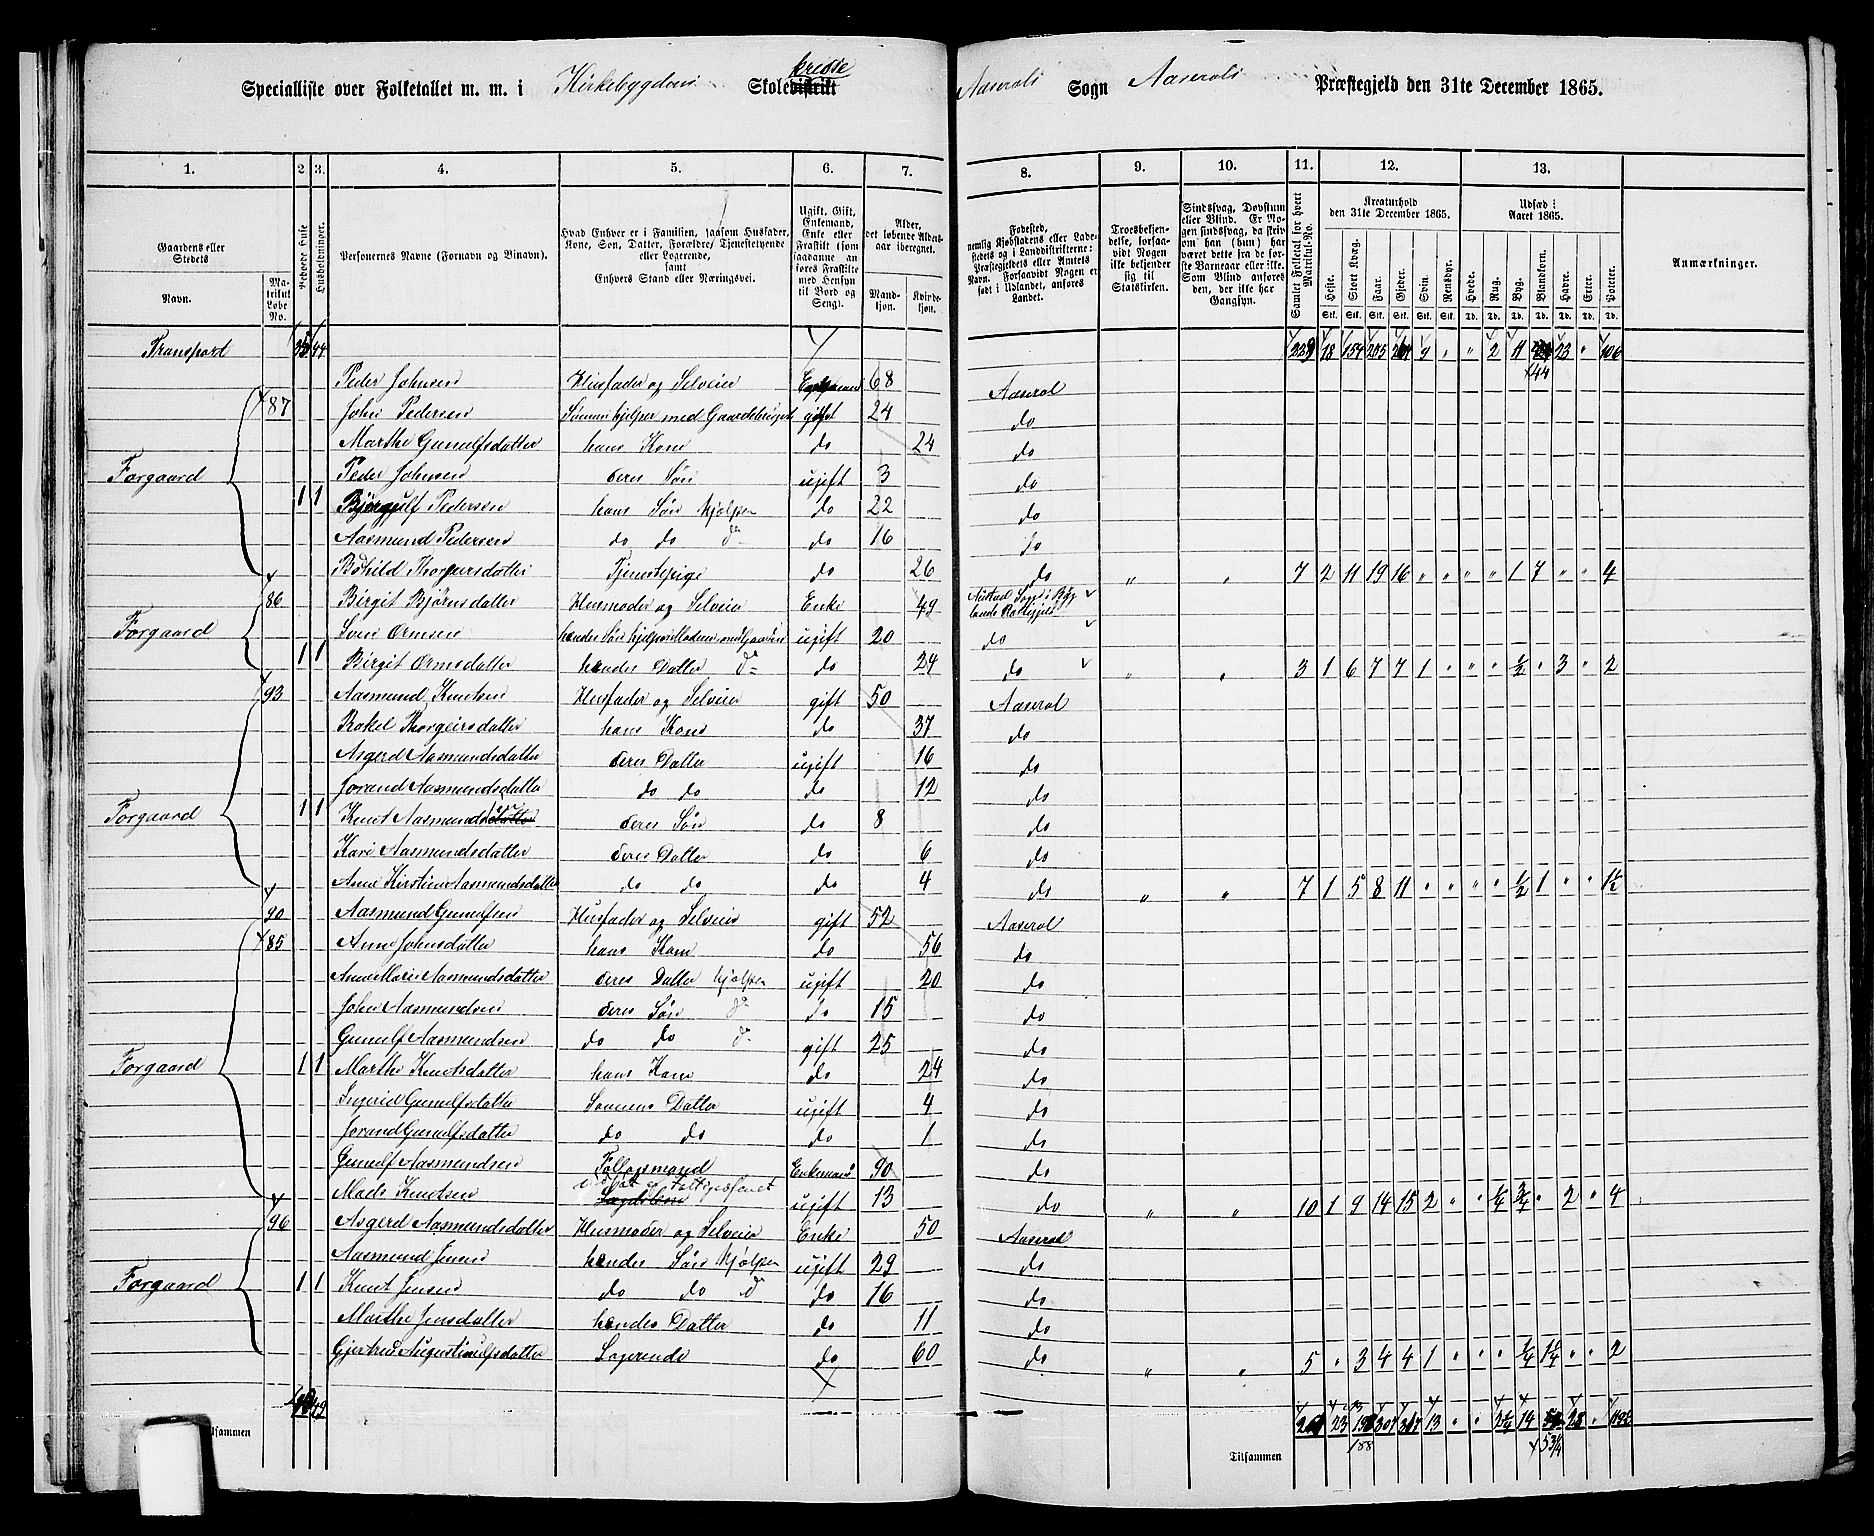 Specialliste over Folketallet m. m. i Kirkebygdens Skoledistrikt kredse Aaserals Sogn Aaserals Præstegjeld den 31te December 1865.
1. 2. 3. 4. 5. 6. 7. 8. 9. 10. 11. 12. 13.
Gaardens eller Stedets Navn.
Matrikul Løbe No.
Beboede Huse
Husholdninger.
Personernes Navne (Fornavn og Tilnavn).
Hvad Enhver er i Familien, saasom Husfader, Kone, Søn, Datter, Forældre, Tjenestetyende eller Logerende, samt Enhvers Stand eller Næringsvei.
Ugift, Gift, Enkemand, Enke eller Fraskilt (saasom saadanne anføres Fraskilte med Hensyn til Bord og Seng).
Alder, det løbende Aldersaar iberegnet.
Mandkjøn. Kvindekjøn.
Fødested, nemlig Kjøbstadens eller Ladestedets eller i Landdistrikterne: Præstegjeldets eller Amtets Navn. Forsaavidt Nogen er født i Udlandet, anføres Landet.
Troesbekjendelse, forsaavidt Nogen ikke bekjender sig til Statskirken.
Sindssvag, Døvstum eller Blind. Er Nogen sindssvag, da skrives om han (hun) har været dette fra de første Barneaar eller ikke. Som Blind anføres den, der ikke har Gangsyn.
Samlet Folketal for hvert Matrikul-No.
Kreaturhold den 31te December 1865.
Heste. Stort Kvæg. Faar. Gjeder. Svin. Rensdyr.
Udsæd i Aaret 1865.
Hvede. Rug. Byg. Blandkorn. Havre. Erter. Poteter.
Stk. Stk. Stk. Stk. Stk. Stk. Td. Td. Td. Td. Td. Td. Td.
Anmærkninger.
Transport 35 44 18 154 9 " " 2 11 23 " 106
44
Peder Johnsen Husfader og Selveier Enkemand 68 Aaseral
87 John Pedersen gift 24 do
Marthe Gunulfsdatter hans Kone do 24 do
Forgaard Peder Johnsen deres Søn ugift 3 do
1 1 Bjørgulf Pedersen hans Søn hjelper do 22 do
Aasmund Pedersen do do do do 16 do
Tjenestepige do 26 do " " 7 2 11 19 16 " " " " 1 7 " " 4
86 Birgit Bjørnsdatter Husmoder og Selveier Enke 49
Forgaard Sven Ormsen ugift 20 do
1 1 Birgit Ormsdatter hendes Datter do do 24 do " " 3 1 6 7 7 1 " " " ½ " 3 " 2
93 Aasmund Knutsen Husfader og Selveier gift 50 Aaseral
Rakel Thorgeirsdatter hans Kone do 37 do
Asgerd Aasmundsdatter deres Datter ugift 16 do
Jorand Aasmundsdatter do do do 12 do
Forgaard 1 1 Knut Aasmundsdatter deres Søn do 8 do
Kari Aasmundsdatter deres Datter do 6 do
Anne Kirstine Aasmundsdatter do do do 4 do " " 7 1 5 8 11 " " " " ½ 1 " " 1½
90 Aasmund Gunulfsen Husfader og Selveier gift 52 Aaseral
85 Anne Johnsdatter hans Kone do 56 do
Anne Marie Aasmundsdatter deres Datter hjelper ugift 20 do
John Aasmundsen deres Søn do do 15 do
Gunulf Aasmundsen do do do gift 25 do
Forgaard 1 1 Marthe Knutsdatter hans Kone do 24 do
Ingrid Gunulfsdatter Sønnens Datter ugift 4 do
Jorand Gunulfsdatter do do do 1 do
Gunulf Aasmundsen Enkemand 90 do
Mads Knutsen ugift 13 do " " 10 1 9 14 15 2 " " ¼ ¾ " 2 " 4
96 Asgerd Aasmundsdatter Husmoder og Selveier Enke 50 Aaseral
Aasmund Jensen hendes Søn hjelper ugift 29 do
Forgaard 1 1 Knut Jensen do do do do 16 do
Marthe Jensdatter hendes Datter do 11 do
Logerende do 60 do " " 5 " 3 4 4 1 " " " ¼ 1¼ " " 2
49 23 307 13 " " 2¼ 14
188 53¼
Tilsammen Tilsammen